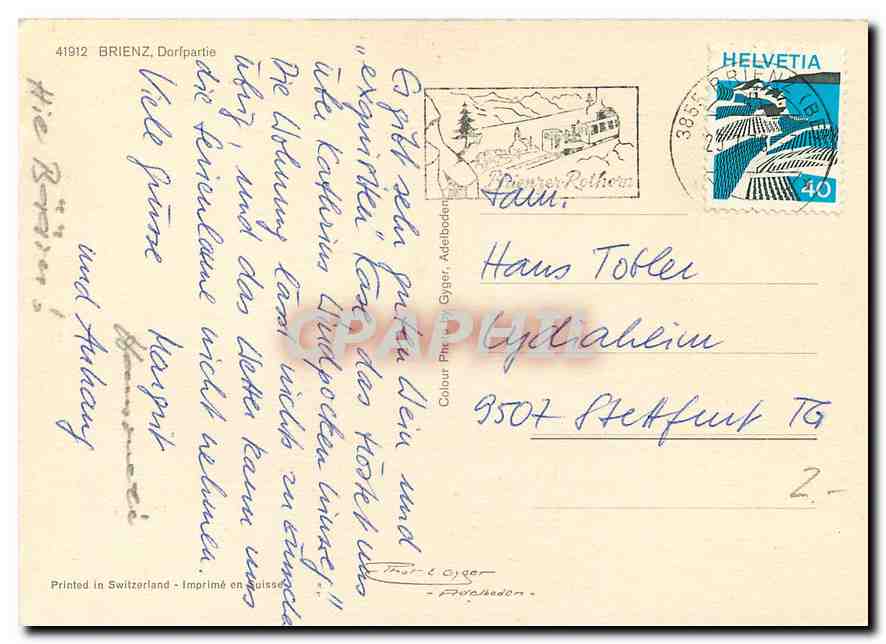 41912 BRIENZ, Dorfpartie
Es gibt sehr guten Wein und
"exquisiten" Käse, das tröstet uns
über Kathrins Windpocken hinweg!"
Die Wohnung lässt nichts zu wünschen
übrig, und das Wetter kann uns
die Ferienlaune nicht nehmen.
Viele Grüsse Margrit
und Anhang
Printed in Switzerland - Imprimé en Suisse
Colour Photo by Gyger, Adelboden
Photo E Gyger
- Adelboden -
Brienzer-Rothorn
3855 BRIENZ (BE
HELVETIA
40
Fam.
Hans Tobler
Lydiaheim
9507 Stettfurt TG
2.-
CPAPHIL